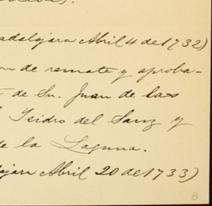 adalajara Abril 4 de 1732)
on de remate y aproba-
de Sn. Juan de las
Isidro del Sanz y
de la Laguna.
lajara Abril 20 de 1733)
8